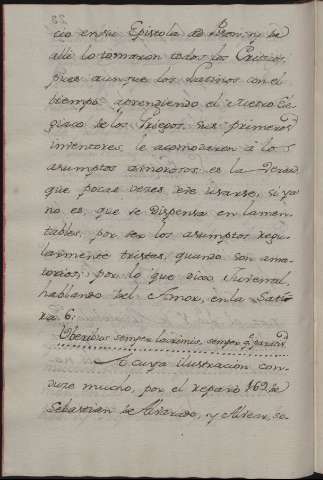 cio en su Epistola ad Pison, y de
alli lo tomaron todos los Criticos,
pues aunque los Latinos con el
tiempo aprendiendo el Metro Ele
giaco de los Griegos, sus primeros
inventores, le acomodaron à lo s
asumptos amorosos, es la verdad
que pocas veces debe usarse, si ya
no es, que se dispensa en lamen
tables, por ser los asumptos regu
larmente tristes, quando son ama
torios; por lo que dixo Juvenal,
hablando del Amor, en la Saty
ra 6.
Uberibus semper lacrimis, semper q. paratis
A cuya ilustracion con
duze mucho, por el reparo 162 de
Sebastian de Alvarado, y Alvear, so-